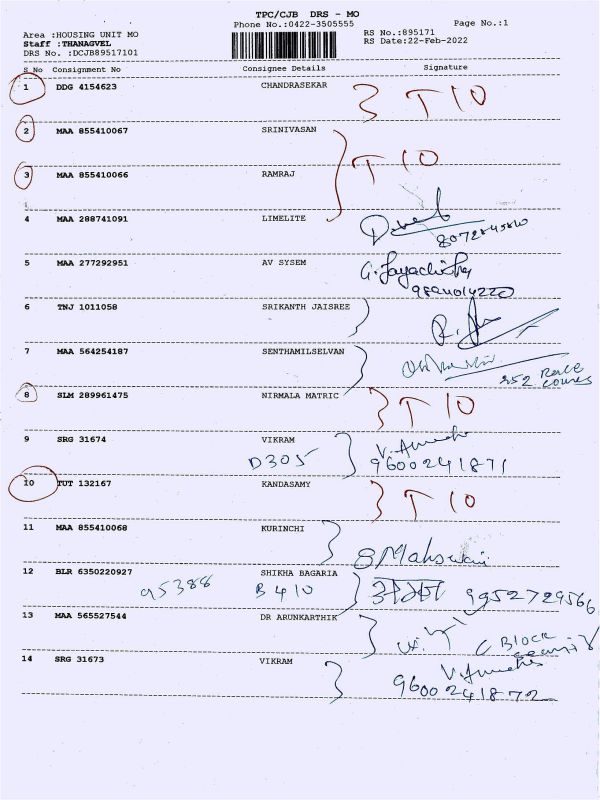 TPC/CJB DRS - MO
Phone No.:0422-3505555
Page No.:1
Area :HOUSING UNIT MO
RS No.:895171
Staff :THANAGVEL
RS Date:22-Feb-2022
DRS No. :DCJB89517101
S No Consignment No Consignee Details Signature
1 DDG 4154623 CHANDRASEKAR T 10
2 MAA 855410067 SRINIVASAN
T 10
3 MAA 855410066 RAMRAJ
4 MAA 288741091 LIMELITE
5 MAA 277292951 AV SYSEM
6 TNJ 1011058 SRIKANTH JAISREE
7 MAA 564254187 SENTHAMILSELVAN
252 Race
course
8 SLM 289961475 NIRMALA MATRIC T 10
9 SRG 31674 VIKRAM
D305 9600241871
10 TUT 132167 KANDASAMY T 10
11 MAA 855410068 KURINCHI
12 BLR 6350220927 SHIKHA BAGARIA
95388 B 410 9952729566
13 MAA 565527544 DR ARUNKARTHIK
C BLOCK
14 SRG 31673 VIKRAM
9600241872